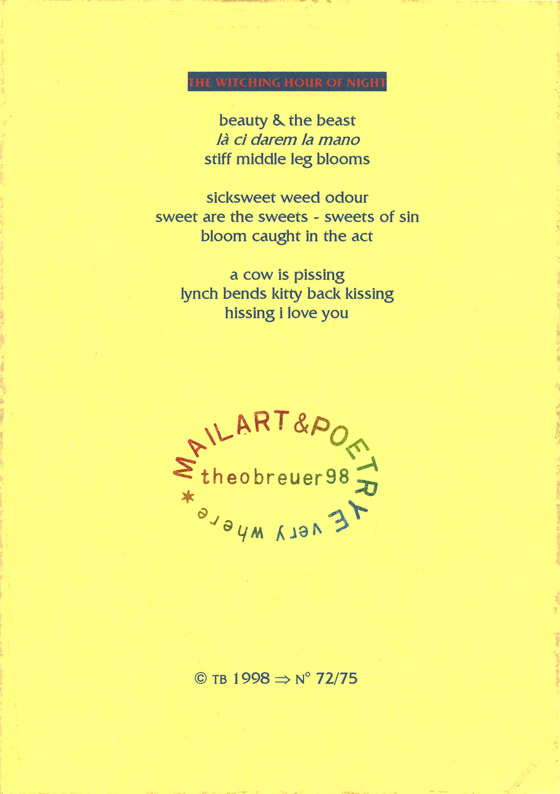 THE WITCHING HOUR OF NIGHT
beauty & the beast
là ci darem la mano
stiff middle leg blooms
sicksweet weed odour
sweet are the sweets - sweets of sin
bloom caught in the act
a cow is pissing
lynch bends kitty back kissing
hissing i love you
MAILART&POETRYEvery where *
theobreuer98
© TB 1998 ⇒ N° 72/75